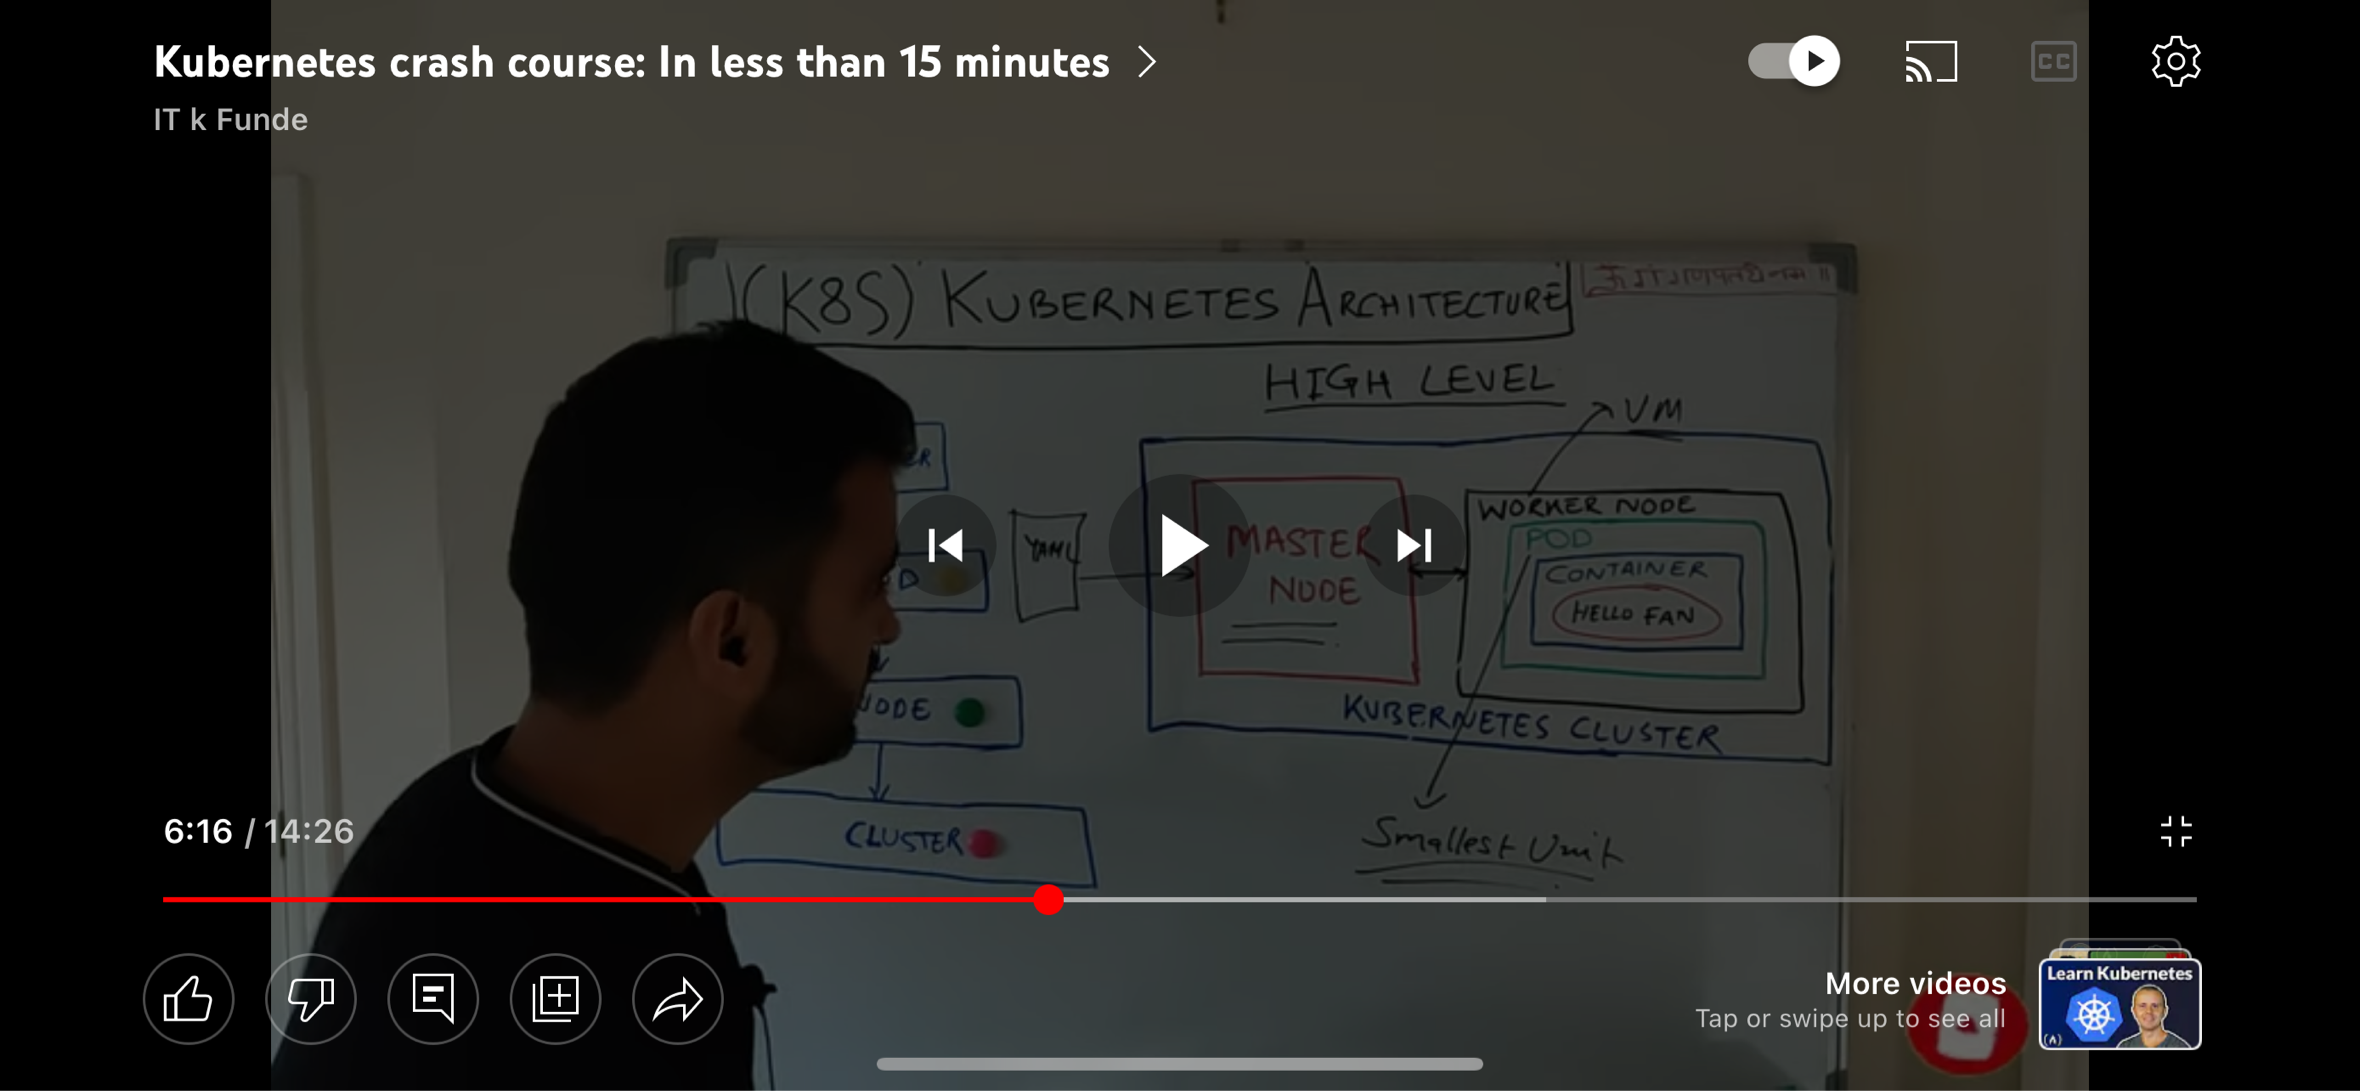 Kubernetes crash course: In less than 15 minutes
IT k Funde
CC
(K8S) KUBERNETES ARCHITECTURE
HIGH LEVEL
VM
ER
WORKER NODE
YAML
MASTER
NODE
POD
D
CONTAINER
HELLO FAN
NODE
KUBERNETES CLUSTER
CLUSTER
Smallest Unit
6:16 / 14:26
More videos
Tap or swipe up to see all
Learn Kubernetes